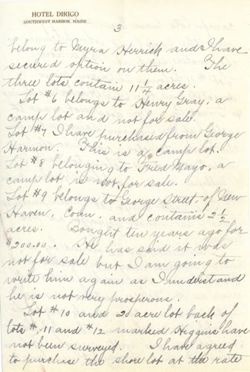 HOTEL DIRIGO
SOUTHWEST HARBOR, MAINE
3
belong to Myra Herrick and I have
secured option on them. The
three lots contain 11 1/4 acres.
Lot #6 belongs to Henry Gray, a
camp lot and not for sale.
Lot #7 I have purchased from George
Harmon. This is a camp lot.
Lot #8 belonging to Fred Mayo, a
camp lot is not for sale.
Lot #9 belongs to George Street of New
Haven, Conn. and contains 2 1/2
acres. bought ten years ago for
$200.00. He has said it was
not for sale but I am going to
write him again as I understand
he is not very prosperous.
Lot #10 and 20 acre lot back of
lots #11 and #12 marked Higgins have
not been surveyed. I have agreed
to purchase the shore lot at the rate